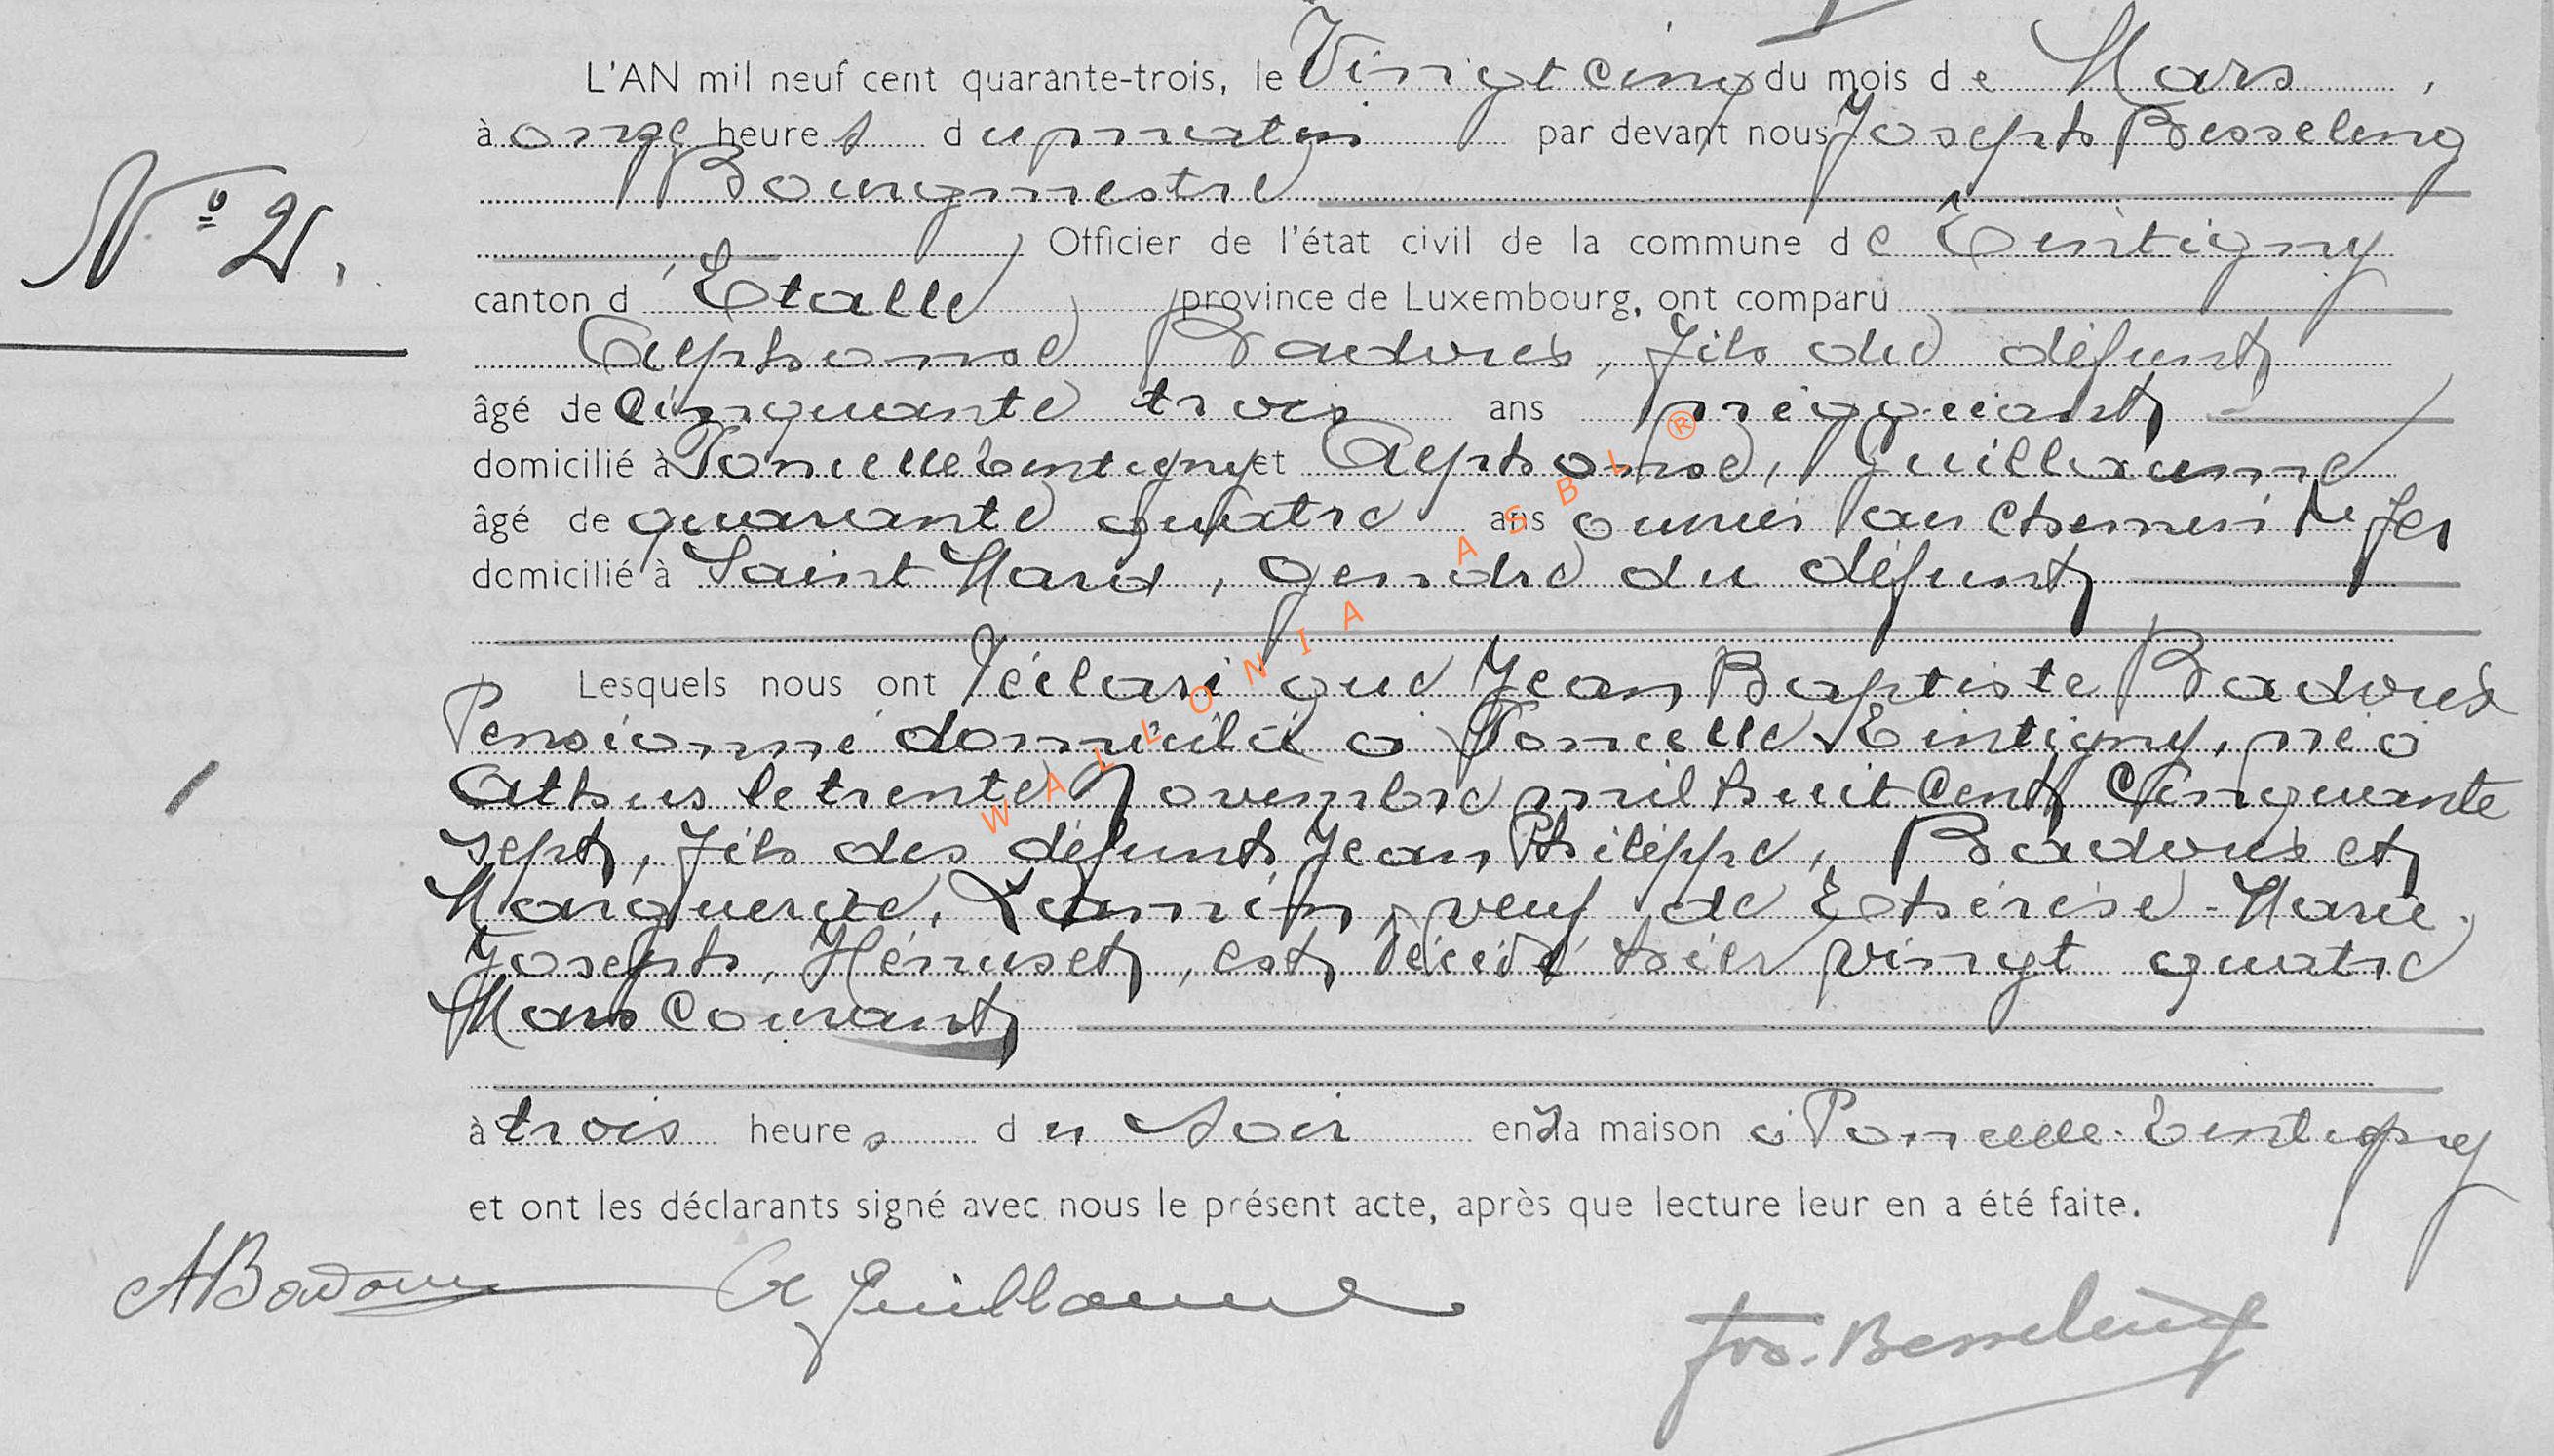 L'AN mil neuf cent quarante-trois, le Vingt cinq du mois de Mars,
à onze heures du matin par devant nous Joseph Besseling
Bourgmestre
N° 2. Officier de l'état civil de la commune de Tintigny
canton d'Etalle province de Luxembourg, ont comparu
Alphonse Badoux, fils du défunt
âgé de cinquante trois ans négociant
domicilié à Poncelle Tintigny et Alphonse, Guillaume
âgé de quarante quatre ans ouvrier au chemin de fer
domicilié à Saint Mard, gendre du défunt
Lesquels nous ont déclaré que Jean Baptiste Badoux
Pensionné domicilié à Poncelle Tintigny, né à
Athus le trente Novembre mil huit cent cinquante
sept, fils des défunts Jean Philippe, Badoux et
Marguerite, veuf de Thérèse-Marie
Joseph, est décédé hier vingt quatre
Mars courant
à trois heures du soir en sa maison à Poncelle-Tintigny
et ont les déclarants signé avec nous le présent acte, après que lecture leur en a été faite.
ABadoux A Guillaume Jos. Besseling
WALLONIA ASBL ®